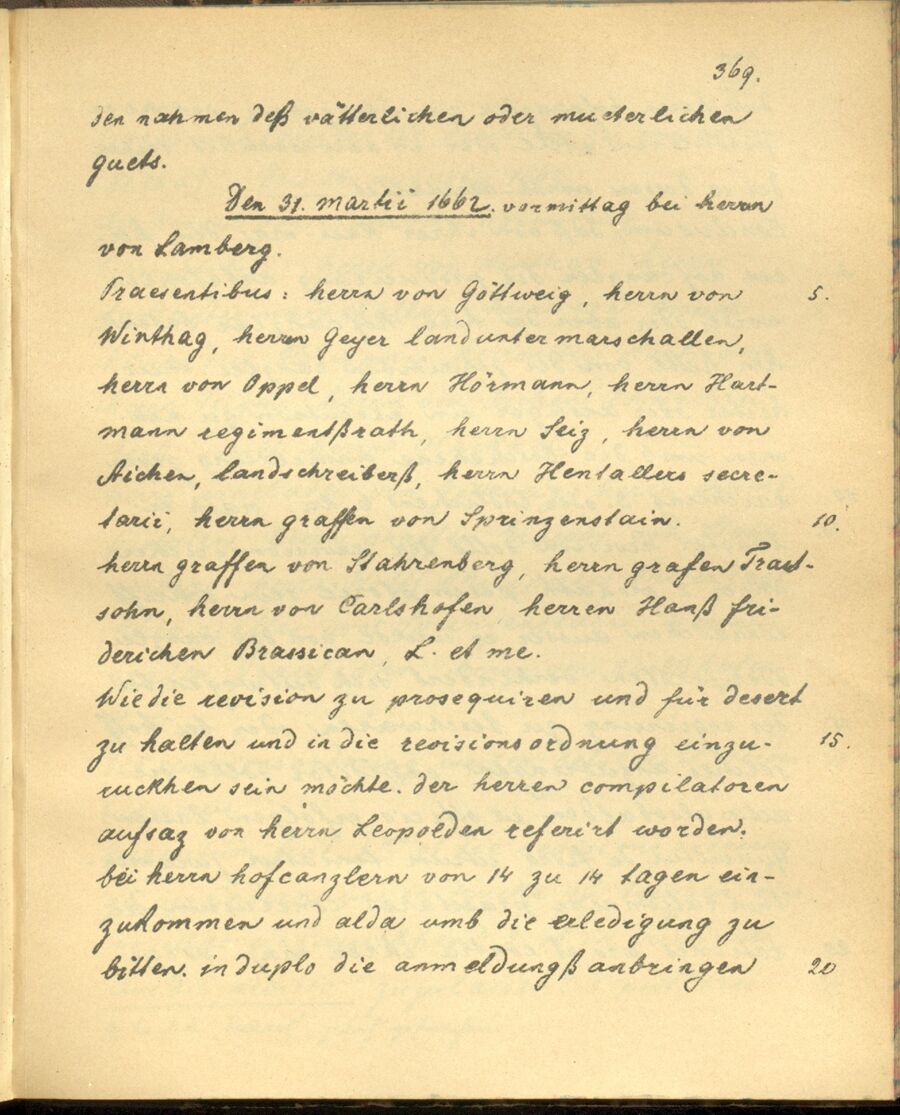 369.
den nahmen deß vätterlichen oder mueterlichen
guets.
Den 31. martii 1662. vormittag bei herrn
von Lamberg.
Praesentibus: herrn von Göttweig, herrn von 5.
Winthag, herrn Geyer landuntermarschallen,
herrn von Oppel, herrn Hörmann, herrn Hart-
mann regimentßrath, herrn Seiz, herrn von
Aichen, landschreiberß, herrn Hentallers secre-
tarii, herrn graffen von Sprinzenstain. 10.
herrn graffen von Stahrenberg, herrn grafen Traut-
sohn, herrn von Carlshofen, herren Hanß fri-
derichen Brassican, L. et me.
Wie die revision zu prosequiren und für desert
zu halten und in die revisionsordnung einzu- 15.
ruckhen sein möchte. der herren compilatoren
aufsaz von herrn Leopolden referirt worden.
bëi herrn hofcanzlern von 14 zu 14 tagen ein-
zukommen und alda umb die erledigung zu
bitten. in duplo die anmeldungß anbringen 20